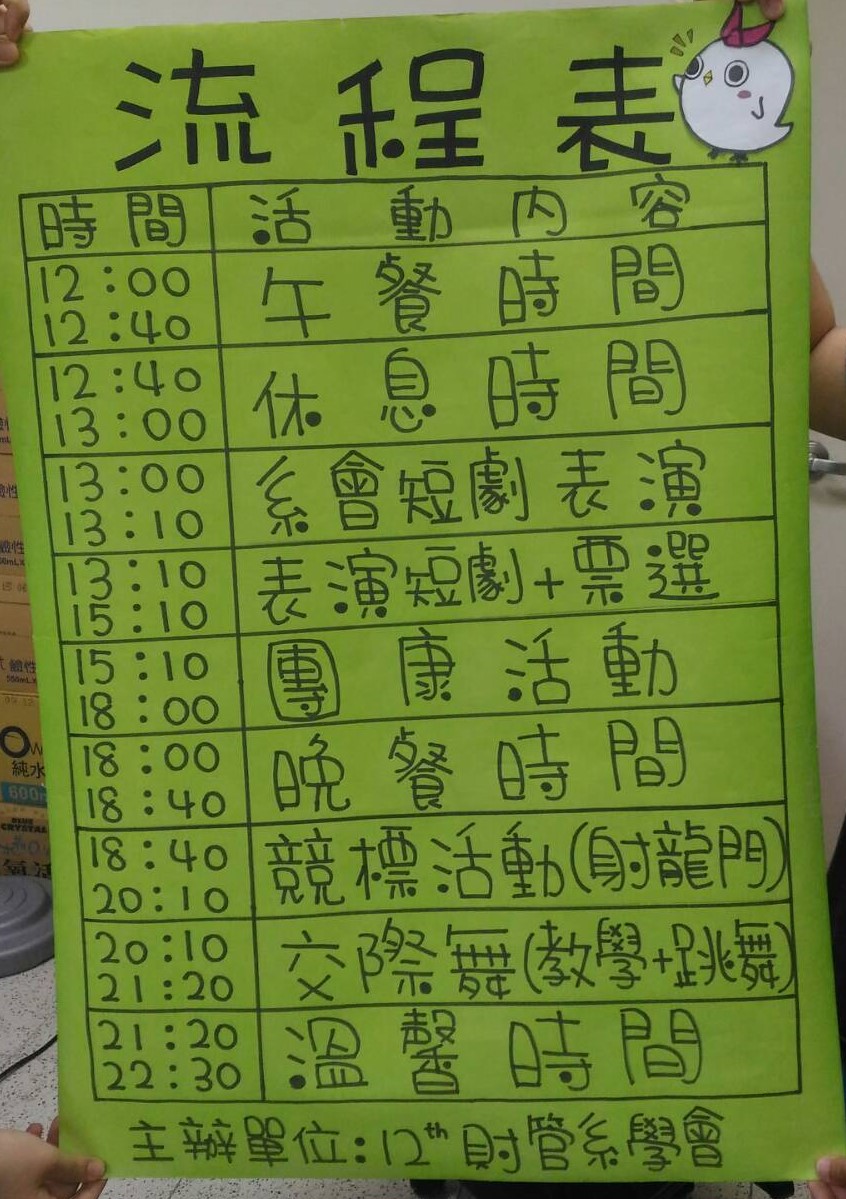 流程表
時間 活動內容
12:00
12:40
午餐時間
12:40
13:00
休息時間
13:00
13:10
系會短劇表演
13:10
15:10
表演短劇+票選
15:10
18:00
團康活動
18:00
18:40
晚餐時間
18:40
20:10
競標活動(射龍門)
20:10
21:20
交際舞(教學+跳舞)
21:20
22:30
溫馨時間
主辦單位:12th財管系學會
鹼性
純水
600
BLUE
CRYSTAL